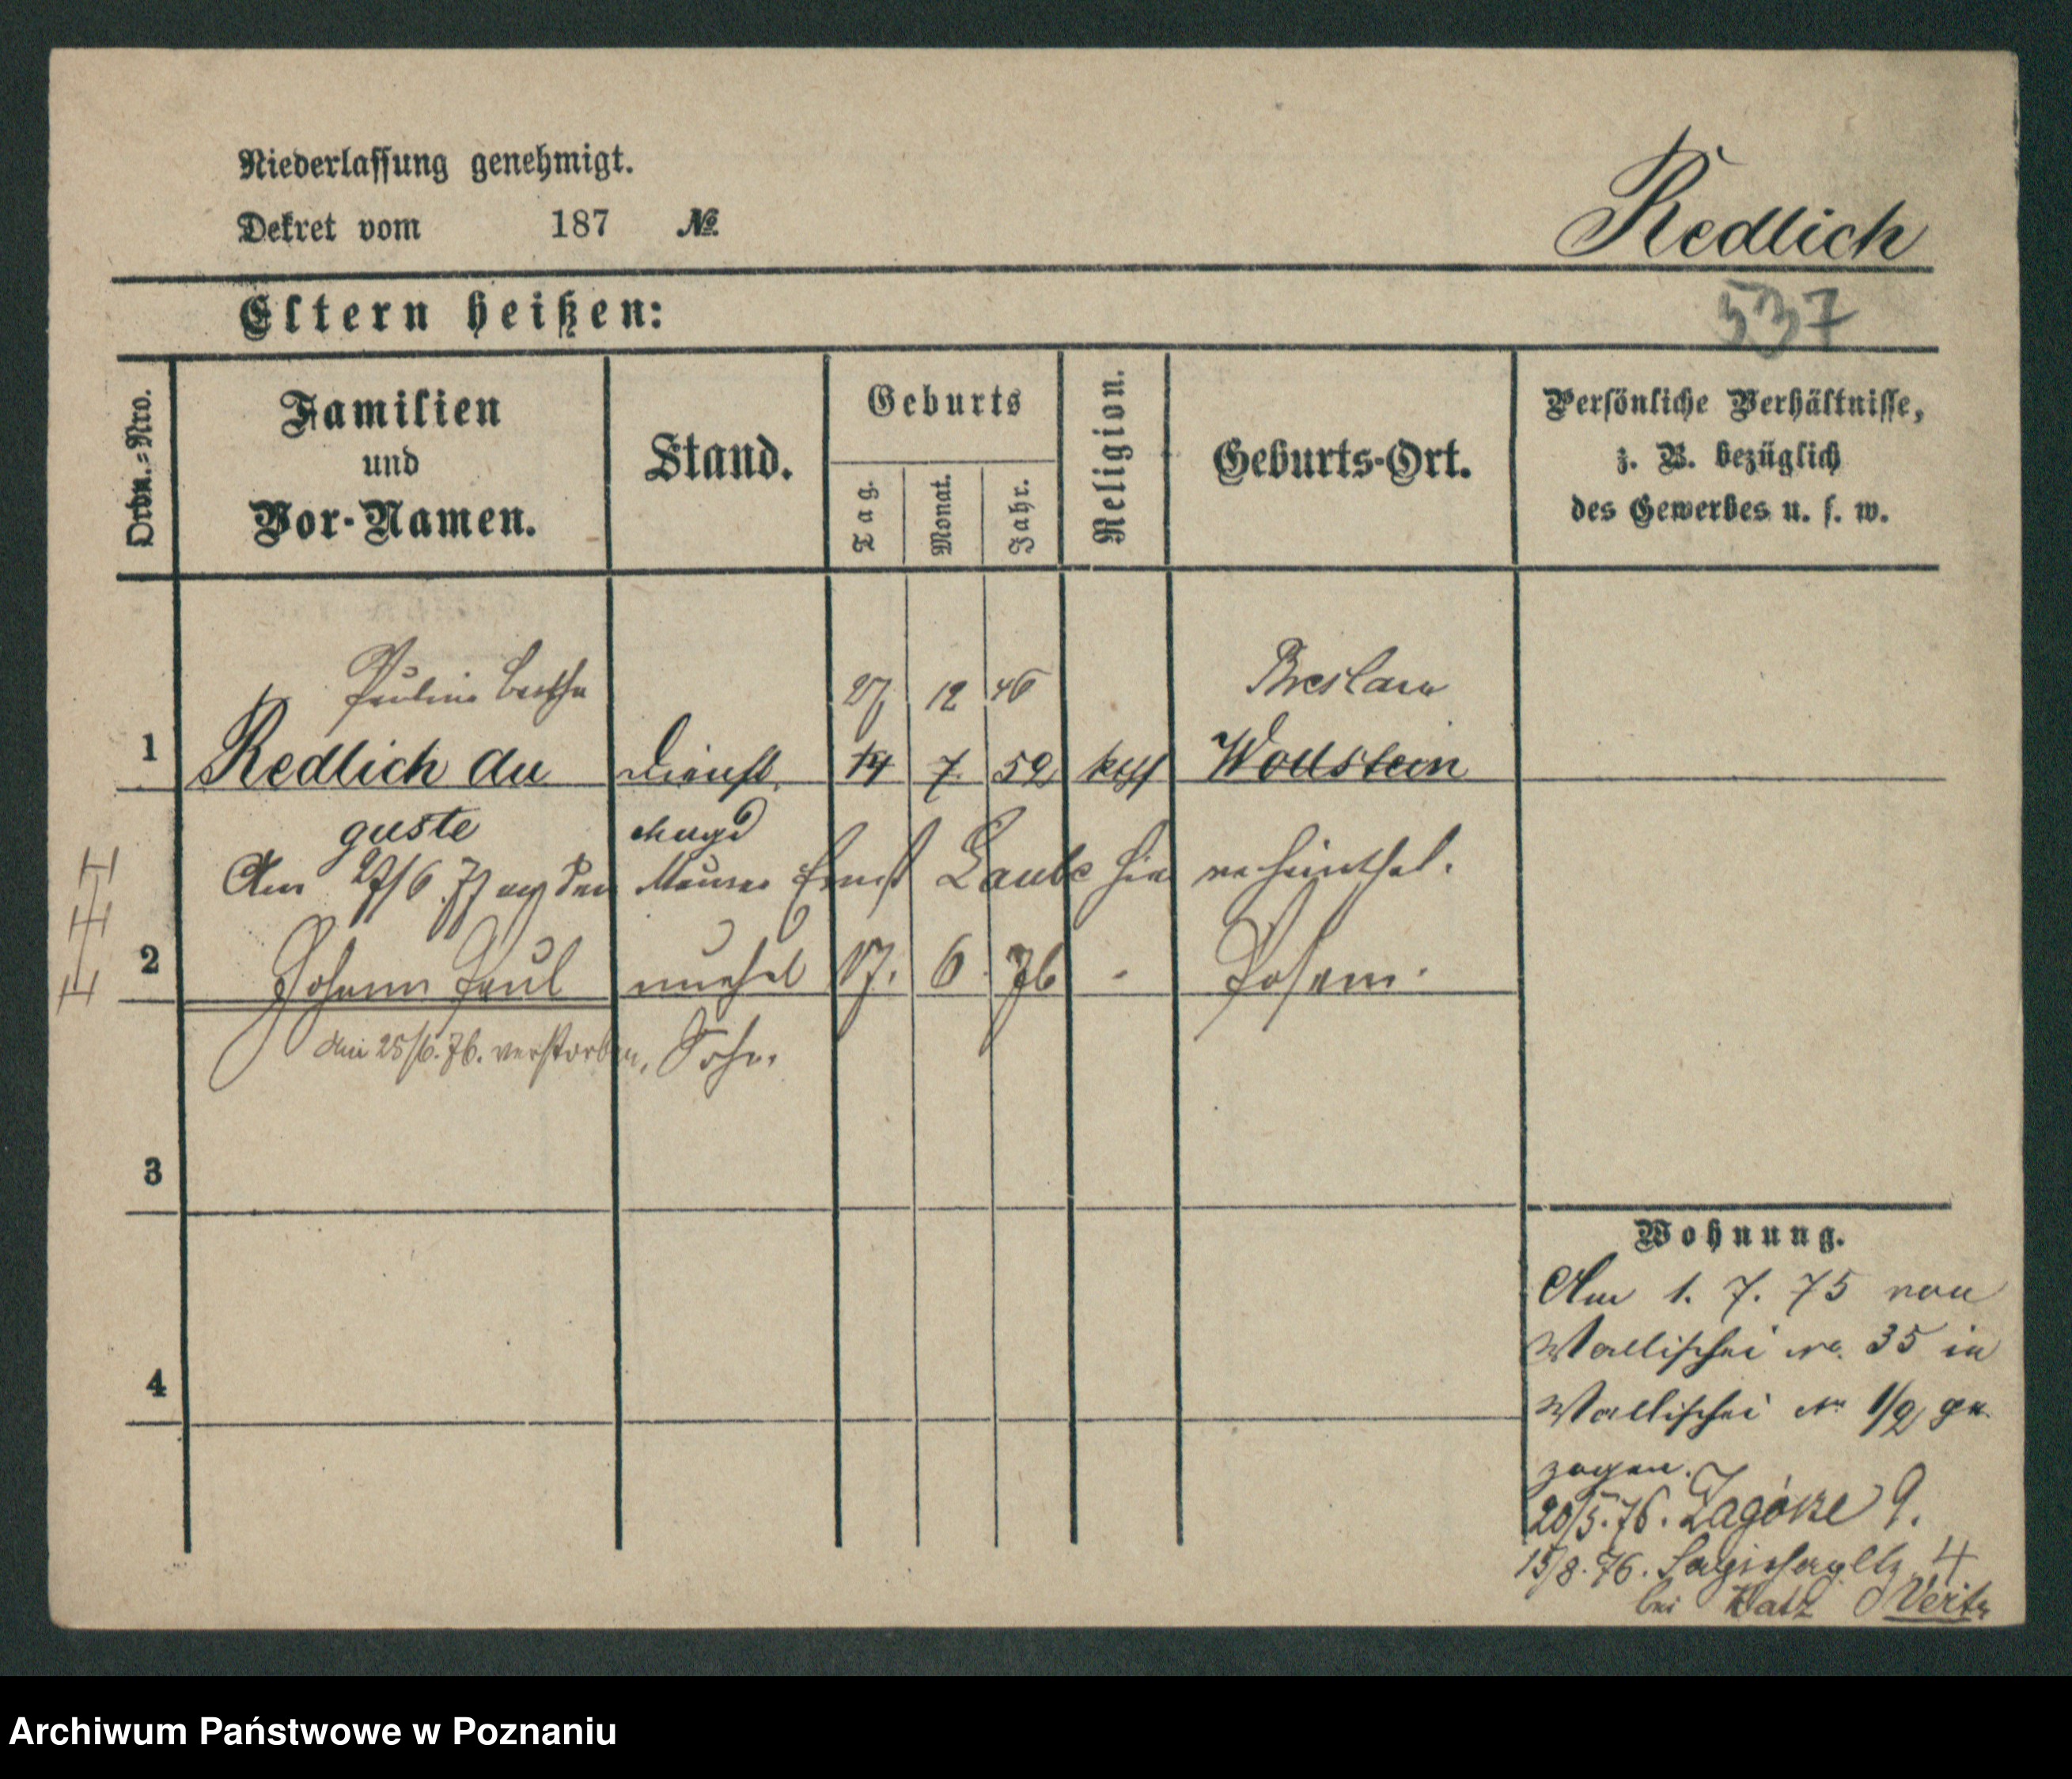 Niederlassung genehmigt.
Dekret vom 187 №
Redlich
Eltern heißen:
537
Ordn.-Nro.
Familien und Vor-Namen.
Stand.
Geburts
Tag.
Monat.
Jahr.
Religion.
Geburts-Ort.
Persönliche Verhältnisse,
z. B. bezüglich
des Gewerbes u. s. w.
Pauline Bertha 27 12 46 Breslau
1 Redlich Au Dienst 14 7. 52 kath Wollstein
guste magd
Am 27/6 77 den Maurer Ernst Laube hier verheirathet.
2 Johann Paul unehel 17. 6. 76 - Posen.
Am 25/6. 76. verstorben, Sohn.
3
4
Wohnung.
Am 1. 7. 75 von
Wallischei No. 35 in
Wallischei No 1/2 ge
zogen.
20/5. 76. Zagórze 9.
15/8. 76. 4
bei Katz
Archiwum Państwowe w Poznaniu